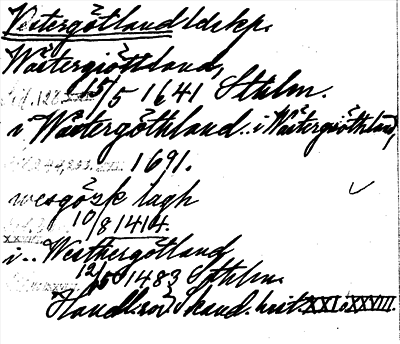 Västergötland ldskp.
Wästergiöttland,
15/5 1641 Sthlm.
i Wästergöthland. i Wästergiöthland,
1691.
wesgözk lagh
10/8 1414.
i .. Westhergötland
12/5 1483 Sthlm.
Handl. rör Skand. hist. XXI o XXVIII.